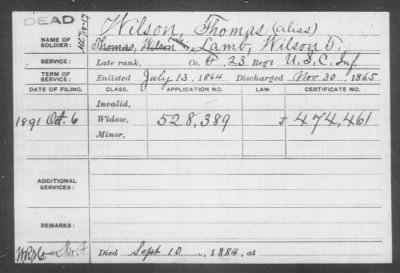 DEAD
NAME OF SOLDIER: Wilson, Thomas (alias)
Thomas, Wilson Lamb, Wilson T.
SERVICE: Late rank, Co. G 23 Reg't U.S.C. Inf.
TERM OF SERVICE: Enlisted July 13, 1864 Discharged Nov. 30, 1865
DATE OF FILING. CLASS. APPLICATION NO. LAW. CERTIFICATE NO.
Invalid,
1891 Oct. 6 Widow, 528,389 J 474,461
Minor,
ADDITIONAL SERVICES:
REMARKS:
Died Sept 10, 1884, at